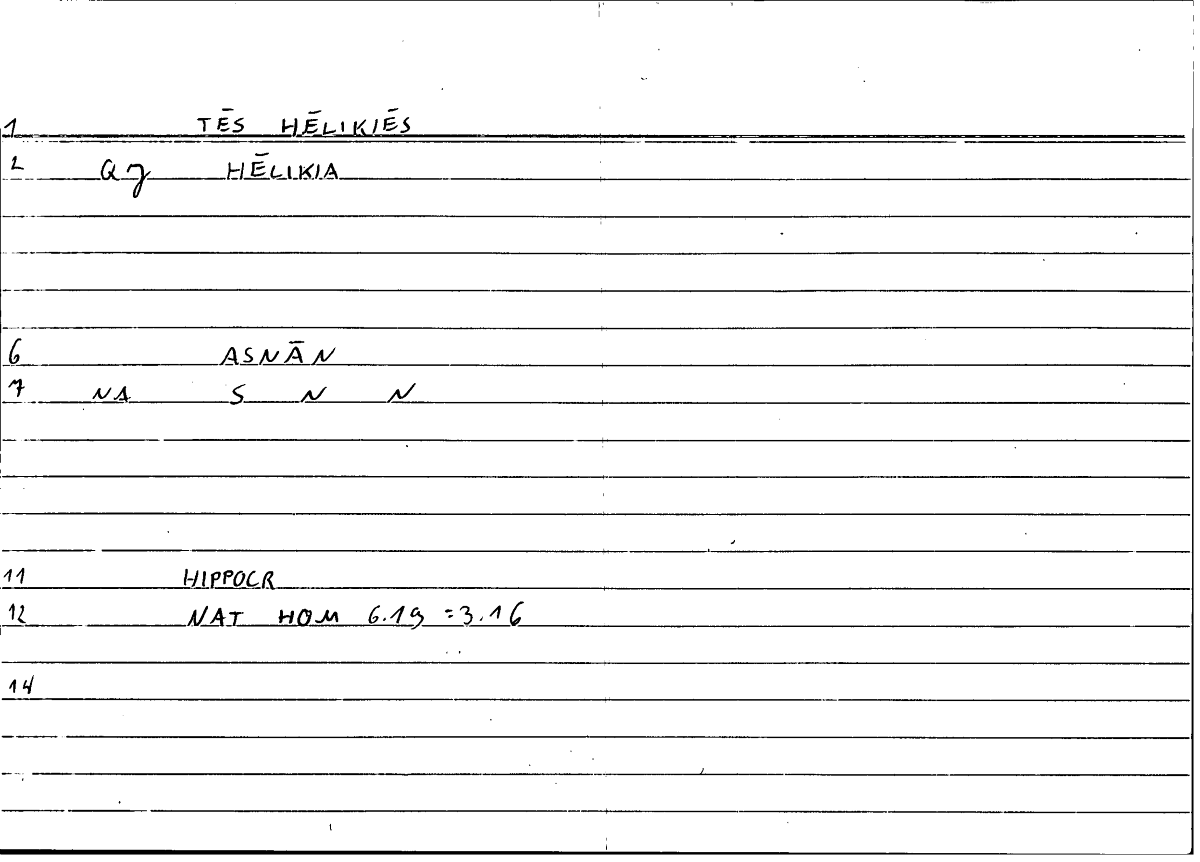 1 TĒS HĒLIKIĒS
2 Q7 HĒLIKIA
6 ASNĀN
7 NA S N N
11 HIPPOCR
12 NAT HOM 6.19 =3.16
14